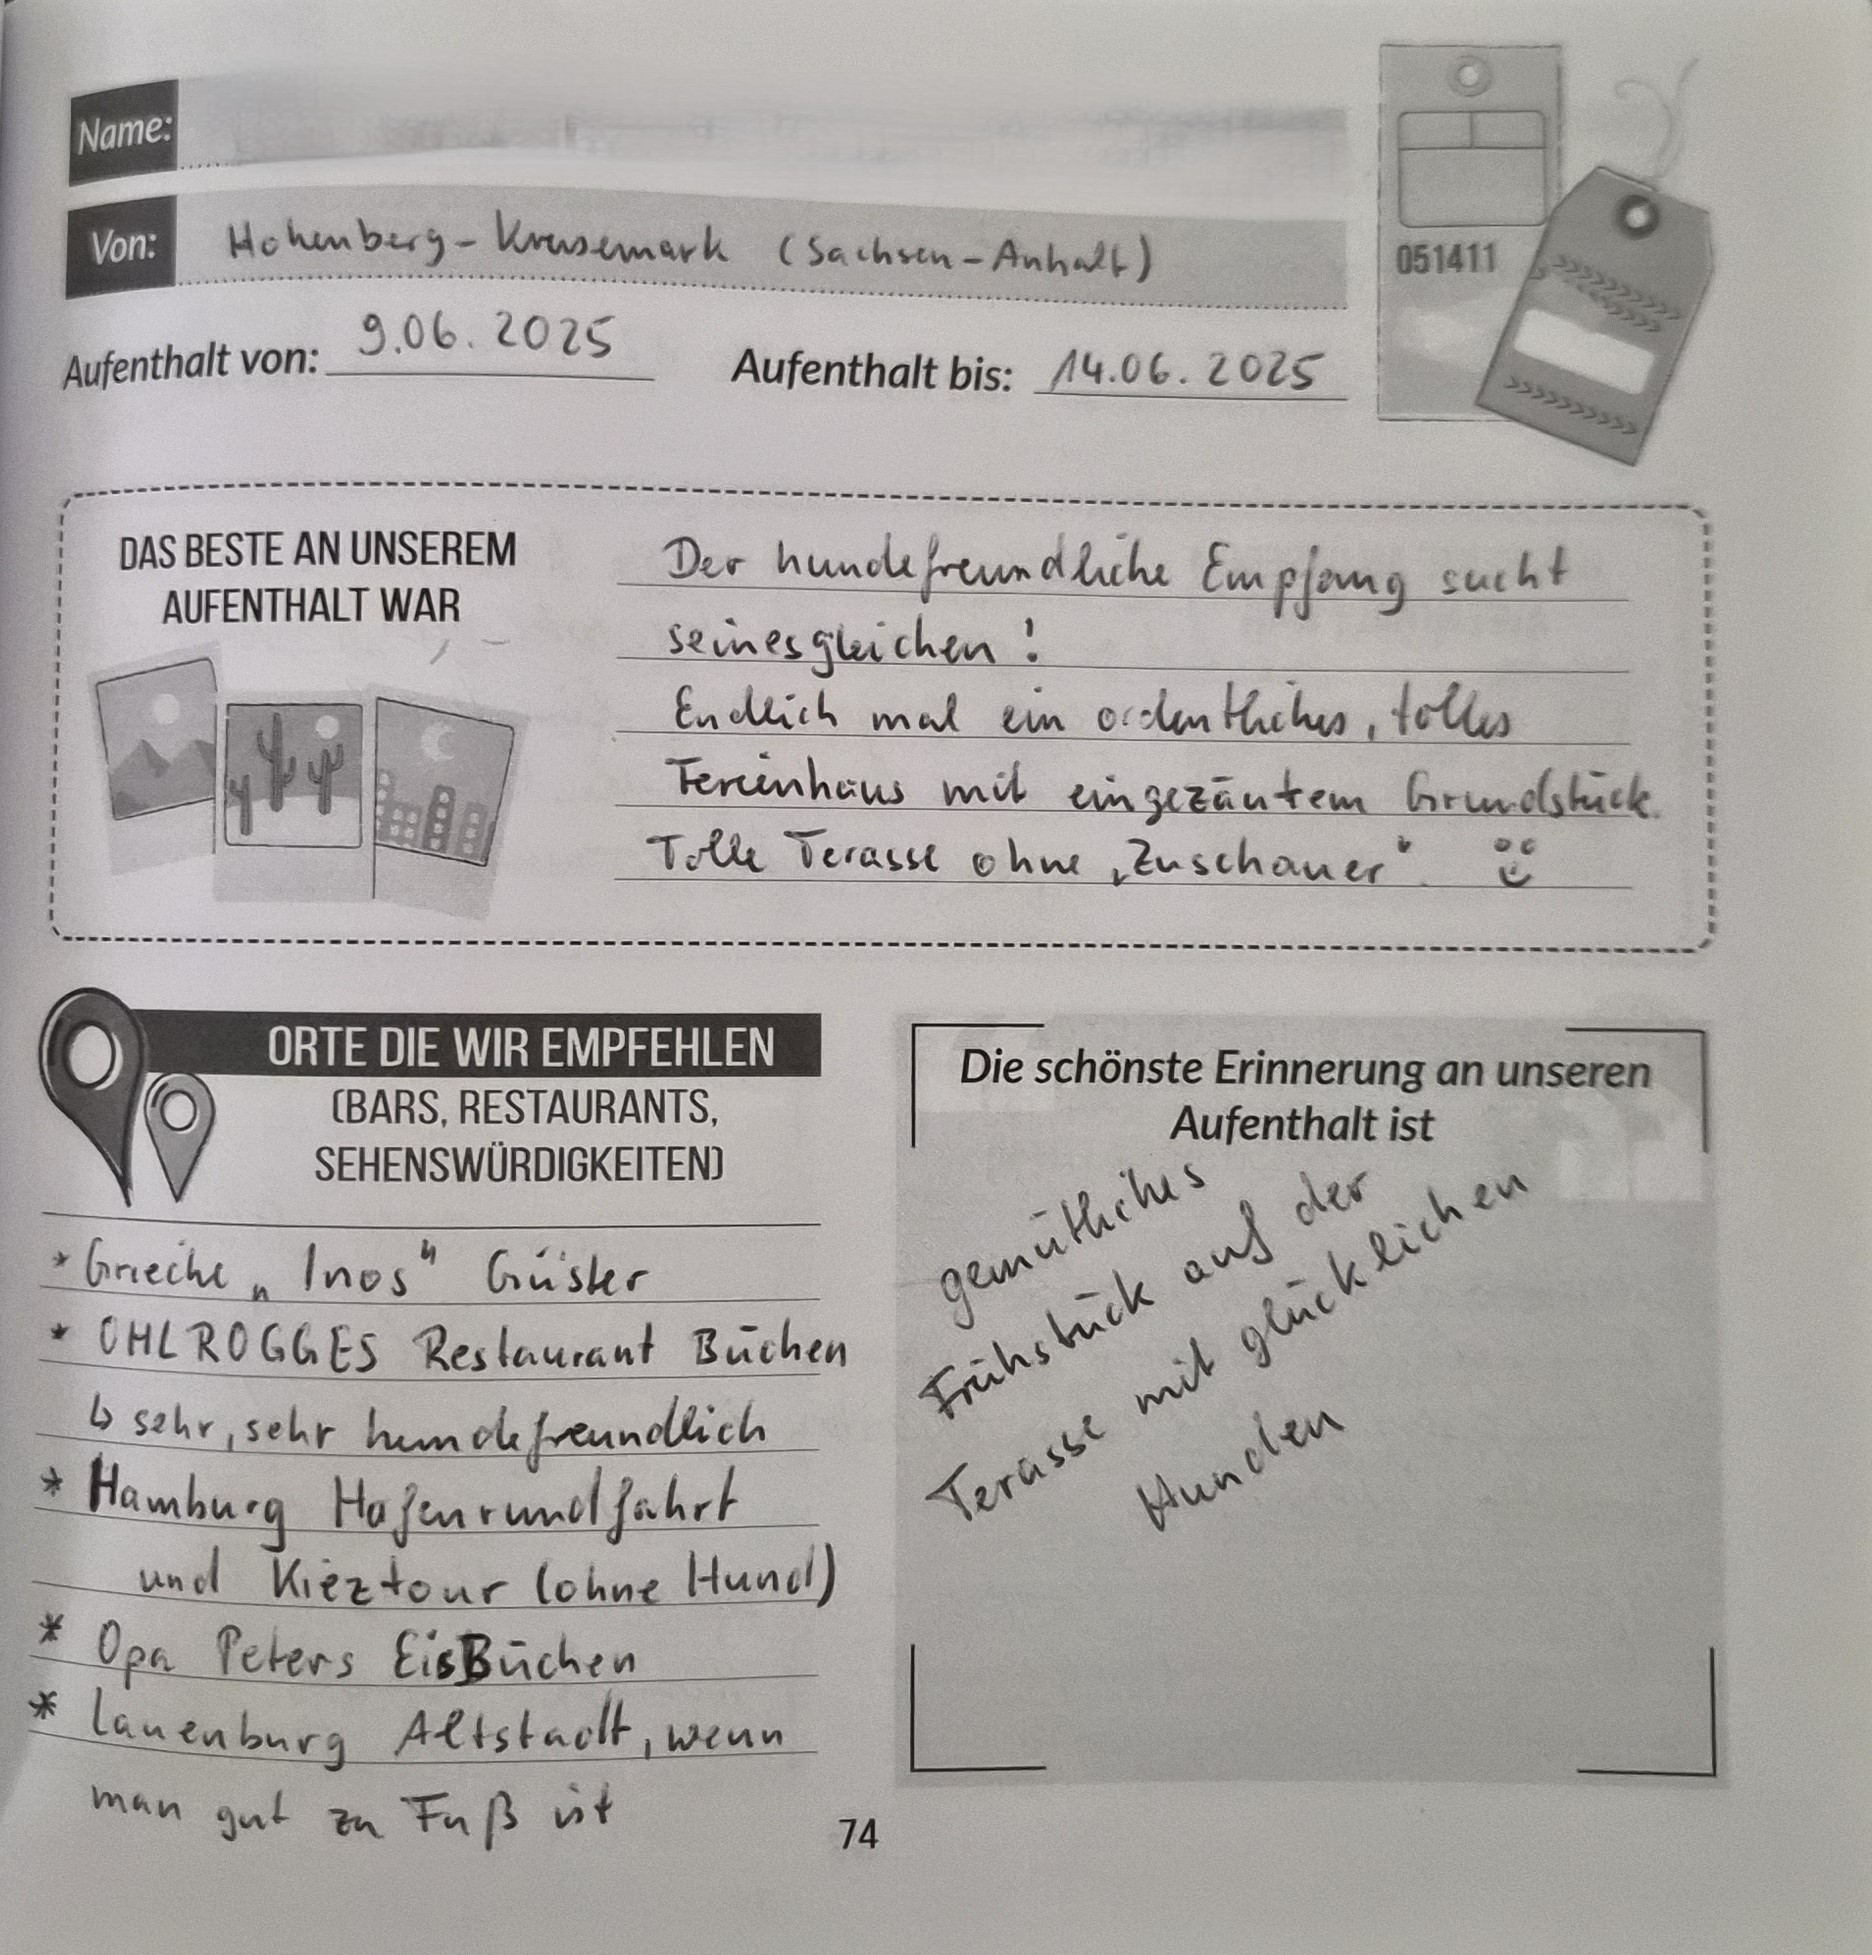 Name:
Von: Hohenberg-Krusemark (Sachsen-Anhalt)
Aufenthalt von: 9.06.2025 Aufenthalt bis: 14.06.2025
051411
DAS BESTE AN UNSEREM
AUFENTHALT WAR
Der hundefreundliche Empfang sucht
seinesgleichen!
Endlich mal ein ordentliches, tolles
Ferienhaus mit eingezäuntem Grundstück.
Tolle Terasse ohne „Zuschauer“.
ORTE DIE WIR EMPFEHLEN
(BARS, RESTAURANTS,
SEHENSWÜRDIGKEITEN)
* Grieche „Inos“ Güster
* OHLROGGES Restaurant Büchen
↳ sehr, sehr hundefreundlich
* Hamburg Hafenrundfahrt
und Kieztour (ohne Hund)
* Opa Peters Eis Büchen
* Lauenburg Altstadt, wenn
man gut zu Fuß ist
Die schönste Erinnerung an unseren
Aufenthalt ist
gemütliches
Frühstück auf der
Terasse mit glücklichen
Hunden
74